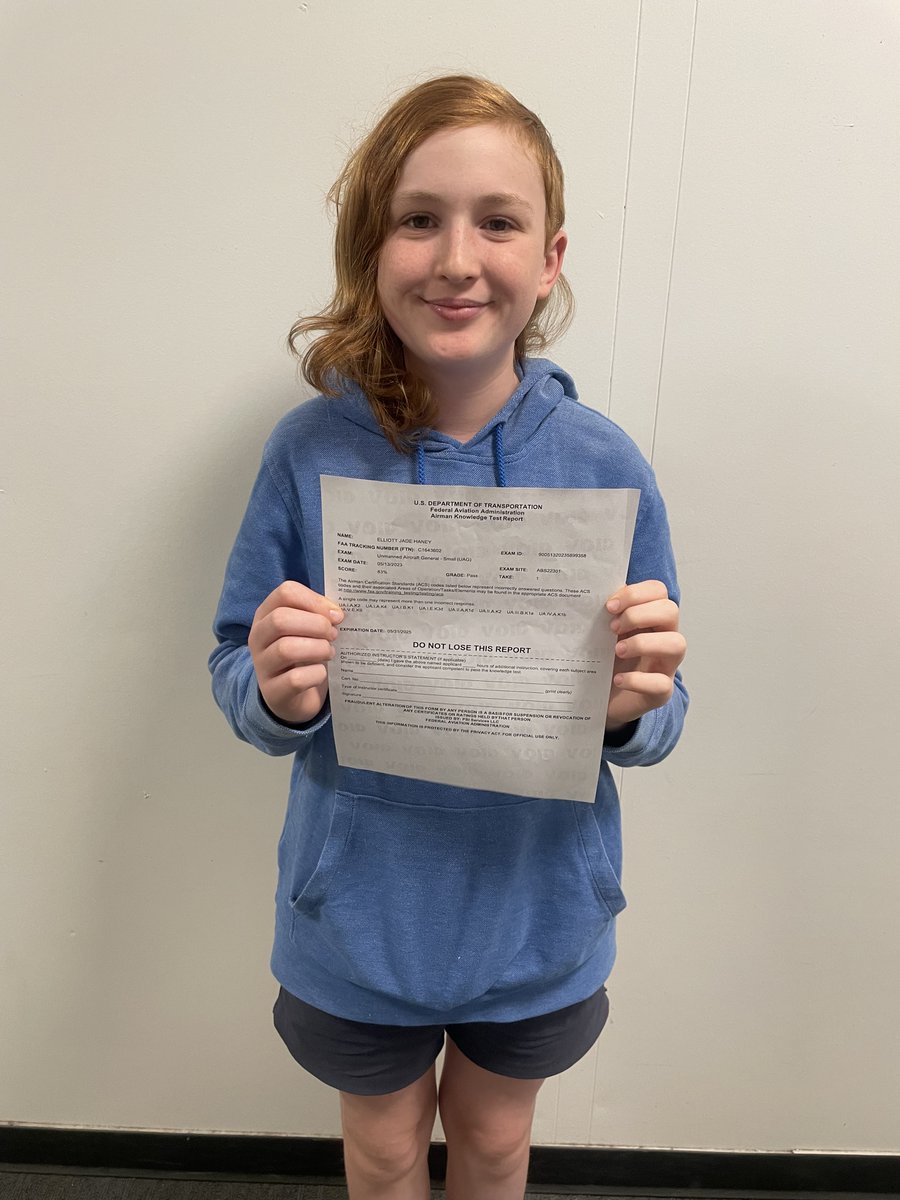 U.S. DEPARTMENT OF TRANSPORTATION
Federal Aviation Administration
Airman Knowledge Test Report
NAME: ELLIOTT JADE HANEY
FAA TRACKING NUMBER (FTN): C1643602 EXAM ID: 90051320235899358
EXAM: Unmanned Aircraft General - Small (UAG)
EXAM DATE: 05/13/2023 EXAM SITE: ABS22301
SCORE: 83% GRADE: Pass TAKE: 1
The Airman Certification Standards (ACS) codes listed below represent incorrectly answered questions. These ACS
codes and their associated Areas of Operation/Tasks/Elements may be found in the appropriate ACS document
at http://www.faa.gov/training_testing/testing/acs
A single code may represent more than one incorrect response.
UA.I.A.K2 UA.I.A.K4 UA.I.B.K1 UA.I.E.K3d UA.II.A.K1d UA.II.A.K2 UA.III.B.K1k UA.IV.A.K1b
UA.V.E.K8
EXPIRATION DATE: 05/31/2025
DO NOT LOSE THIS REPORT
AUTHORIZED INSTRUCTOR'S STATEMENT (if applicable)
On (date) I gave the above named applicant hours of additional instruction, covering each subject area
shown to be deficient, and consider the applicant competent to pass the knowledge test.
Name
Cert. No. (print clearly)
Type of instructor certificate
Signature
FRAUDULENT ALTERATION OF THIS FORM BY ANY PERSON IS A BASIS FOR SUSPENSION OR REVOCATION OF
ANY CERTIFICATES OR RATINGS HELD BY THAT PERSON
ISSUED BY: PSI Services LLC
FEDERAL AVIATION ADMINISTRATION
THIS INFORMATION IS PROTECTED BY THE PRIVACY ACT. FOR OFFICIAL USE ONLY.